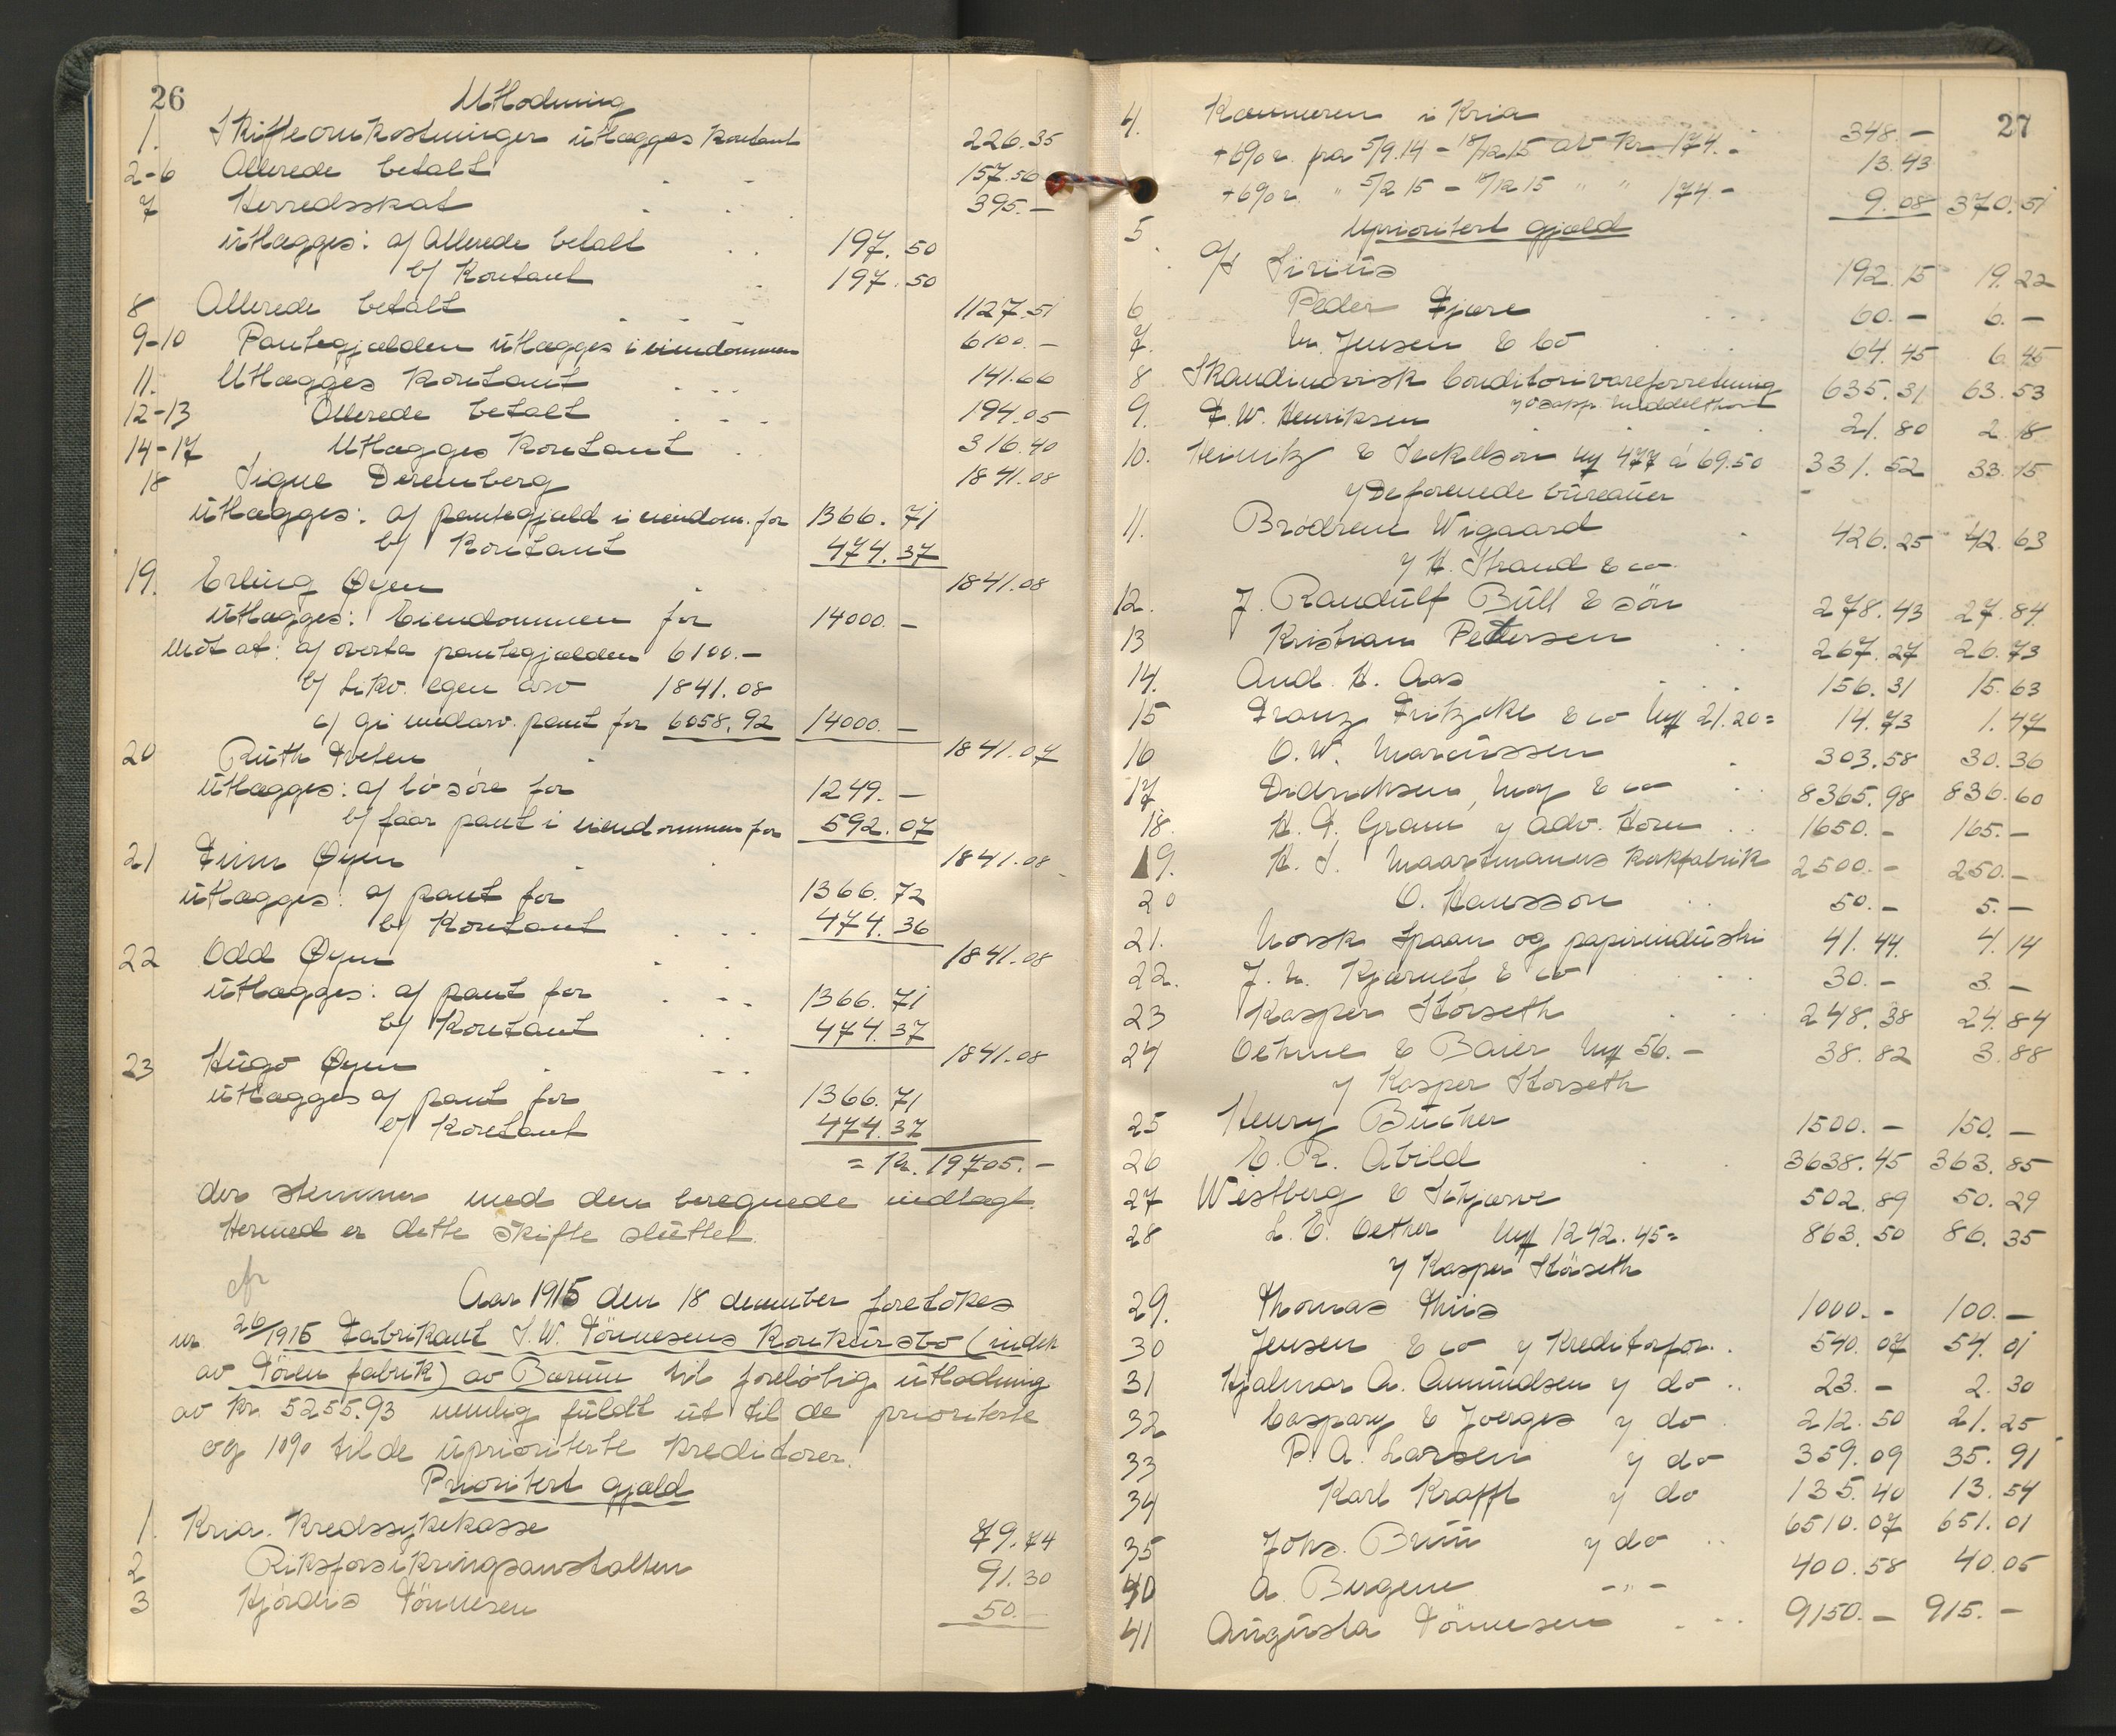 26
Utlodning
1. Skifteomkostninger utlægges kontant 226.35
2-6 Allerede betalt 157.56
7 Herredsskat 395.—
utlægges: a/ Allerede betalt 197.50
b/ Kontant 197.50
8 Allerede betalt 1127.51
9-10 Pantegjælden utlægges i eiendommen 6100.—
11. Utlægges kontant 141.66
12-13 Allerede betalt 194.05
14-17 Utlægges kontant 316.40
18 Signe Deremberg 1841.08
utlægges: a/ pantegjæld i eiendom. for 1366.71
b/ Kontant 474.37
19. Erling Øyen 1841.08
utlægges: Eiendommen for 14000.—
Mot at: a/ overta pantegjælden 6100.—
b/ likv. egen arv 1841.08
c/ gi medarv. pant for 6058.92 14000.—
20 Ruth Tveten 1841.07
utlægges: a/ løsøre for 1249.—
b/ faar pant i eiendommen for 592.07
21 Finn Øyen 1841.08
utlægges: a/ pant for 1366.72
b/ Kontant 474.36
22 Odd Øyen 1841.08
utlægges: a/ pant for 1366.71
b/ Kontant 474.37
23 Hugo Øyen 1841.08
utlægges a/ pant for 1366.71
b/ Kontant 474.37
= Kr. 19705.—
der stemmer med den beregnede indtægt.
Hermed er dette skifte sluttet.
Aar 1915 den 18 december foretokes
nr 26/1915 Fabrikant S.W. Tönnesens Konkursbo (indeh
av Tören fabrik) av Bærum til foreløbig utlodning
av Kr. 5255.93 nemlig fuldt ut til de prioriterte
og 10% til de uprioriterte kreditorer.
Prioritert gjæld
1. Kria. Kredssykekasse 79.74
2 Riksforsikringsanstalten 91.30
3 Hjördis Tönnesen 50.—
27
4. Kæmneren i Kria 348.—
+ 6% r. fra 5/9.14 – 18/12 15 av Kr 174.- 13.43
+ 6% r. " 5/2 15 – 18/12 15 " " 174- 9.08 370.51
5. Uprioritert gjæld
A/S Sirius 192.15 19.22
6 Peder Fjære 60.— 6.—
7. M. Jensen & Co 64.45 6.45
8 Skandinavisk Conditorivareforretning 635.31 63.53
9. F.W. Henriksen v/ o.sapp. Middelthon 21.80 2.18
10. Heinitz & Seckelson M/ 477 á 69.50 331.52 33.15
v/ De forenede bureauer
11. Brödrene Wigaard 426.25 42.63
v/ H. Strand & co
12. J. Randulf Bull & sön 278.43 27.84
13 Kristian Pettersen 267.27 26.73
14. And. H. Aas 156.31 15.63
15 Franz Fritzske & co M/ 21.20= 14.73 1.47
16 O.W. Marcussen 303.58 30.36
17 Didricksen, Moy & co 8365.98 836.60
18. H.F. Gram v/ adv. Horn 1650.- 165.—
19. H.S. Maartmanns kakfabrik 2500.- 250.—
20 O. Hansson 50.- 5.—
21. Norsk Spaan og papirindustri 41.44 4.14
22. J.N. Kjærnet & co 30.- 3.—
23 Kasper Storseth 248.38 24.84
24 Oehme & Baier M/ 56.— 38.82 3.88
v/ Kasper Storseth
25 Henry Bucher 1500.— 150.—
26 E.R. Abild 3638.45 363.85
27 Westberg & Skjærve 502.89 50.29
28 L.E. Oether M/ 1242.45= 863.50 86.35
v/ Kasper Störseth
29. Thomas Thiis 1000.- 100.—
30 Jensen & co v/ Kreditorfor. 540.07 54.01
31 Hjalmar A. Amundsen v/ do 23.- 2.30
32 Caspary & Joerges v/ do 212.50 21.25
33 P.A. Larsen v/ do 359.09 35.91
34 Karl Krafft v/ do 135.40 13.54
35 Johs. Bruu v/ do 6510.07 651.01
40 A. Bergene -"- 400.58 40.05
41 Augusta Tönnesen 9150.- 915.-